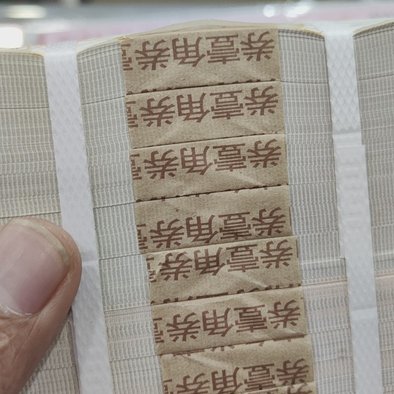 券壹角券
券壹角券
券壹角券
券壹角券
券壹角券
券壹角券
券壹角券